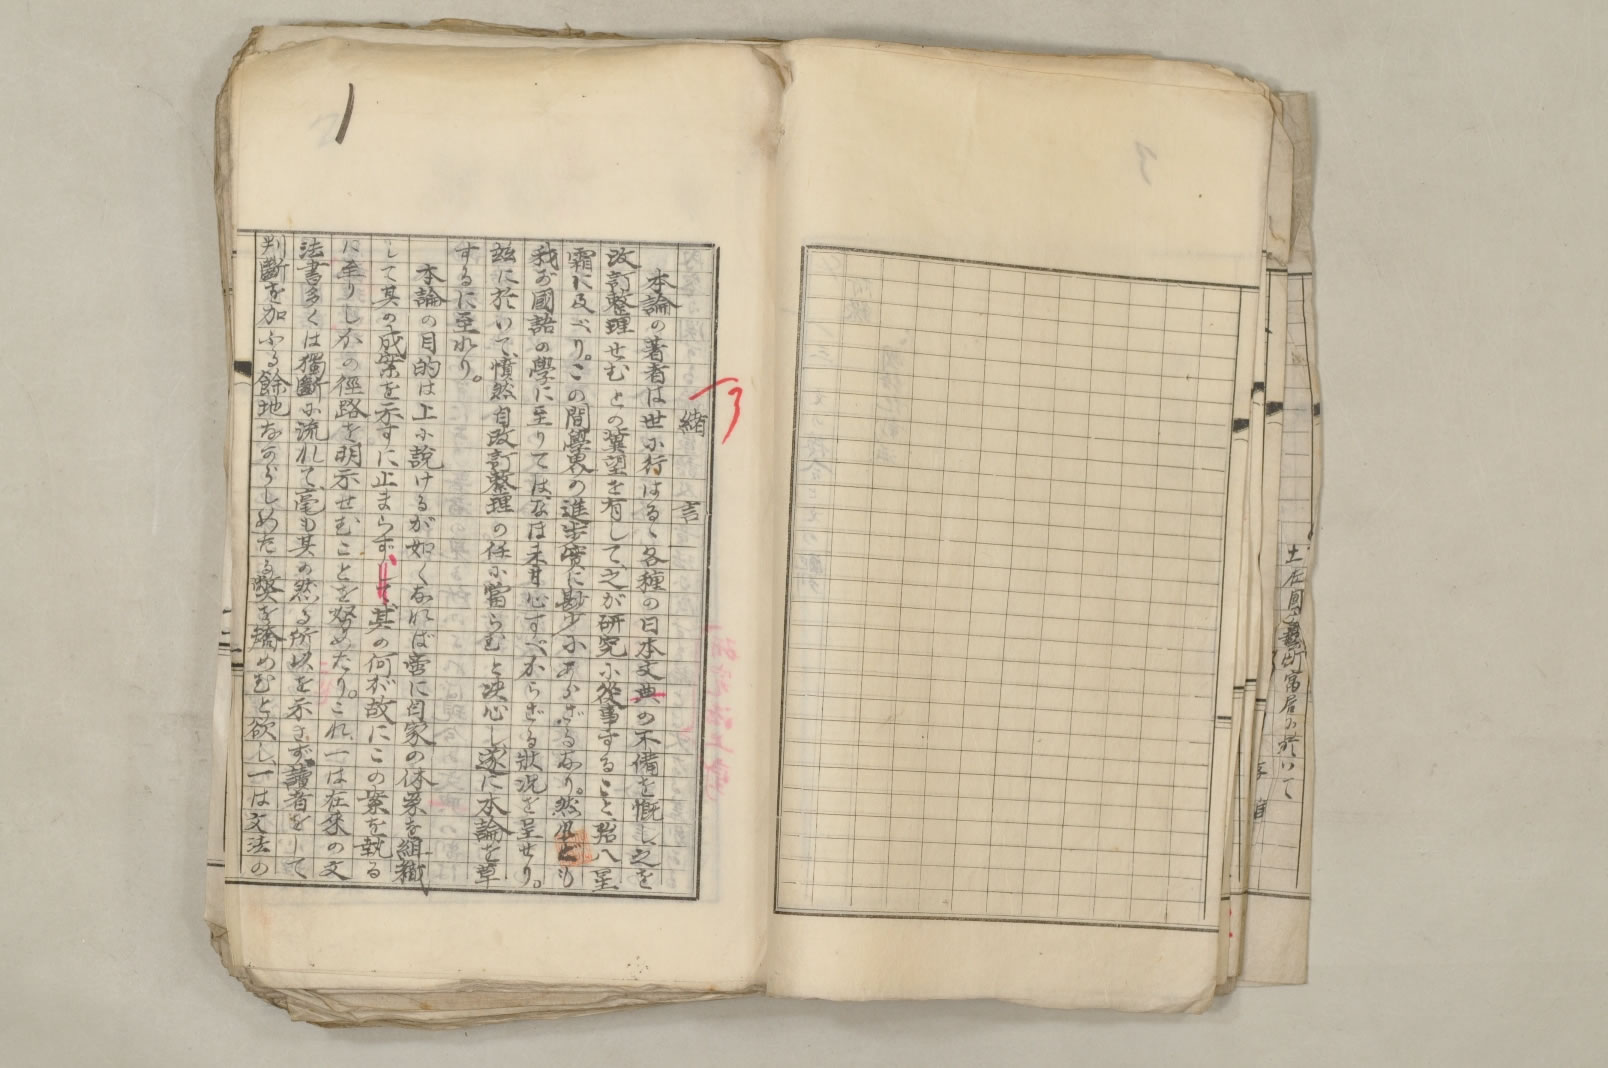 土佐國安藝町寓居に於いて
緒言
本論の著者は世に行はるゝ各種の日本文典の不備を慨し、之を
改訂整理せむとの冀望を有して、之が研究に從事すること玆八星
霜に及べり。この間學界の進歩實に尠少にあらざるなり。然れども
我が國語の學に至りては、なほ未甘心すべからざる狀況を呈せり。
玆に於いて、憤然自改訂整理の任に當らむと决心し、遂に本論を草
するに至れり。
本論の目的は上に説けるが如くなれば啻に自家の体系を組織
して其の成案を示すに止まらず、其の何が故にこの案を執る
に至りしかの徑路を明示せむことを努めたり。これ、一は在來の文
法書多くは獨斷に流れて、毫も其の然る所以を示さず、讀者をして
判斷を加ふる餘地なからしめたる弊を矯めむと欲し、一は文法の